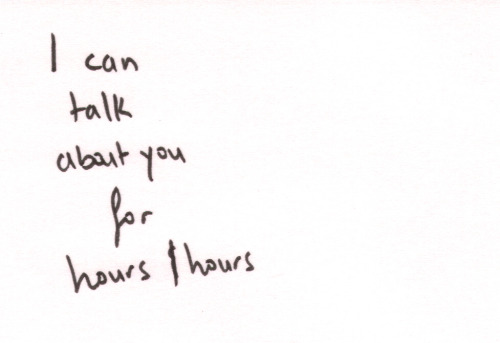 I can
talk
about you
for
hours | hours